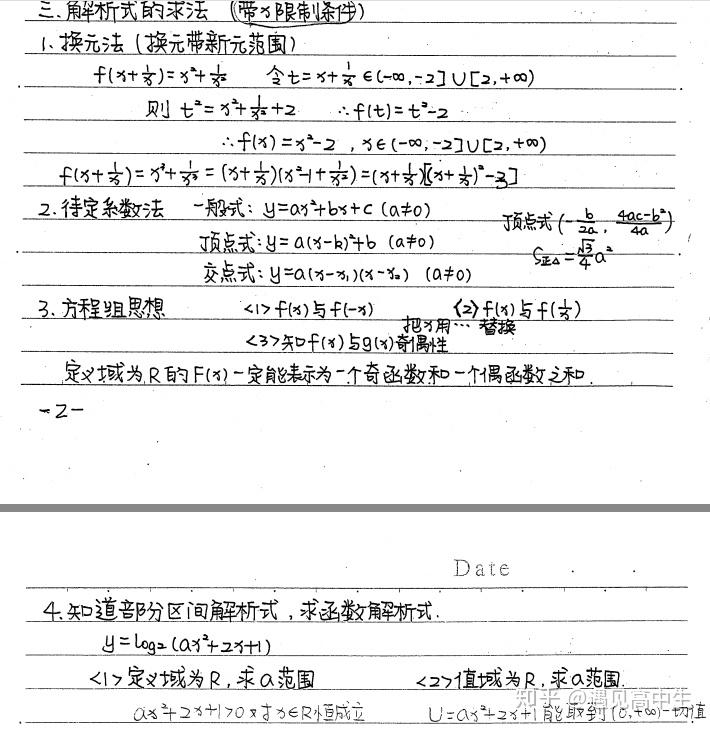 三.解析式的求法 (带x限制条件)
1.换元法(换元带新元范围)
f(x+1/x)=x²+1/x² 令t=x+1/x∈(-∞,-2]∪[2,+∞)
则 t²=x²+1/x²+2 ∴f(t)=t²-2
∴f(x)=x²-2, x∈(-∞,-2]∪[2,+∞)
f(x+1/x)=x³+1/x³=(x+1/x)(x²-1+1/x²)=(x+1/x)[(x+1/x)²-3]
2.待定系数法 一般式: y=ax²+bx+c (a≠0) 顶点式(-b/2a, 4ac-b²/4a)
顶点式: y=a(x-k)²+b (a≠0) S正△=√3/4 a²
交点式: y=a(x-x₁)(x-x₂) (a≠0)
3.方程组思想 <1>f(x)与f(-x) <2>f(x)与f(1/x)
把x用…替换
<3>知f(x)与g(x)奇偶性
定义域为R的F(x)一定能表示为一个奇函数和一个偶函数之和.
-2-
Date
4.知道部分区间解析式,求函数解析式.
y=log₂(ax²+2x+1)
<1>定义域为R,求a范围 <2>值域为R,求a范围.
ax²+2x+1>0对x∈R恒成立 U=ax²+2x+1能取到(0,+∞)一切值
知乎 @遇见高中生